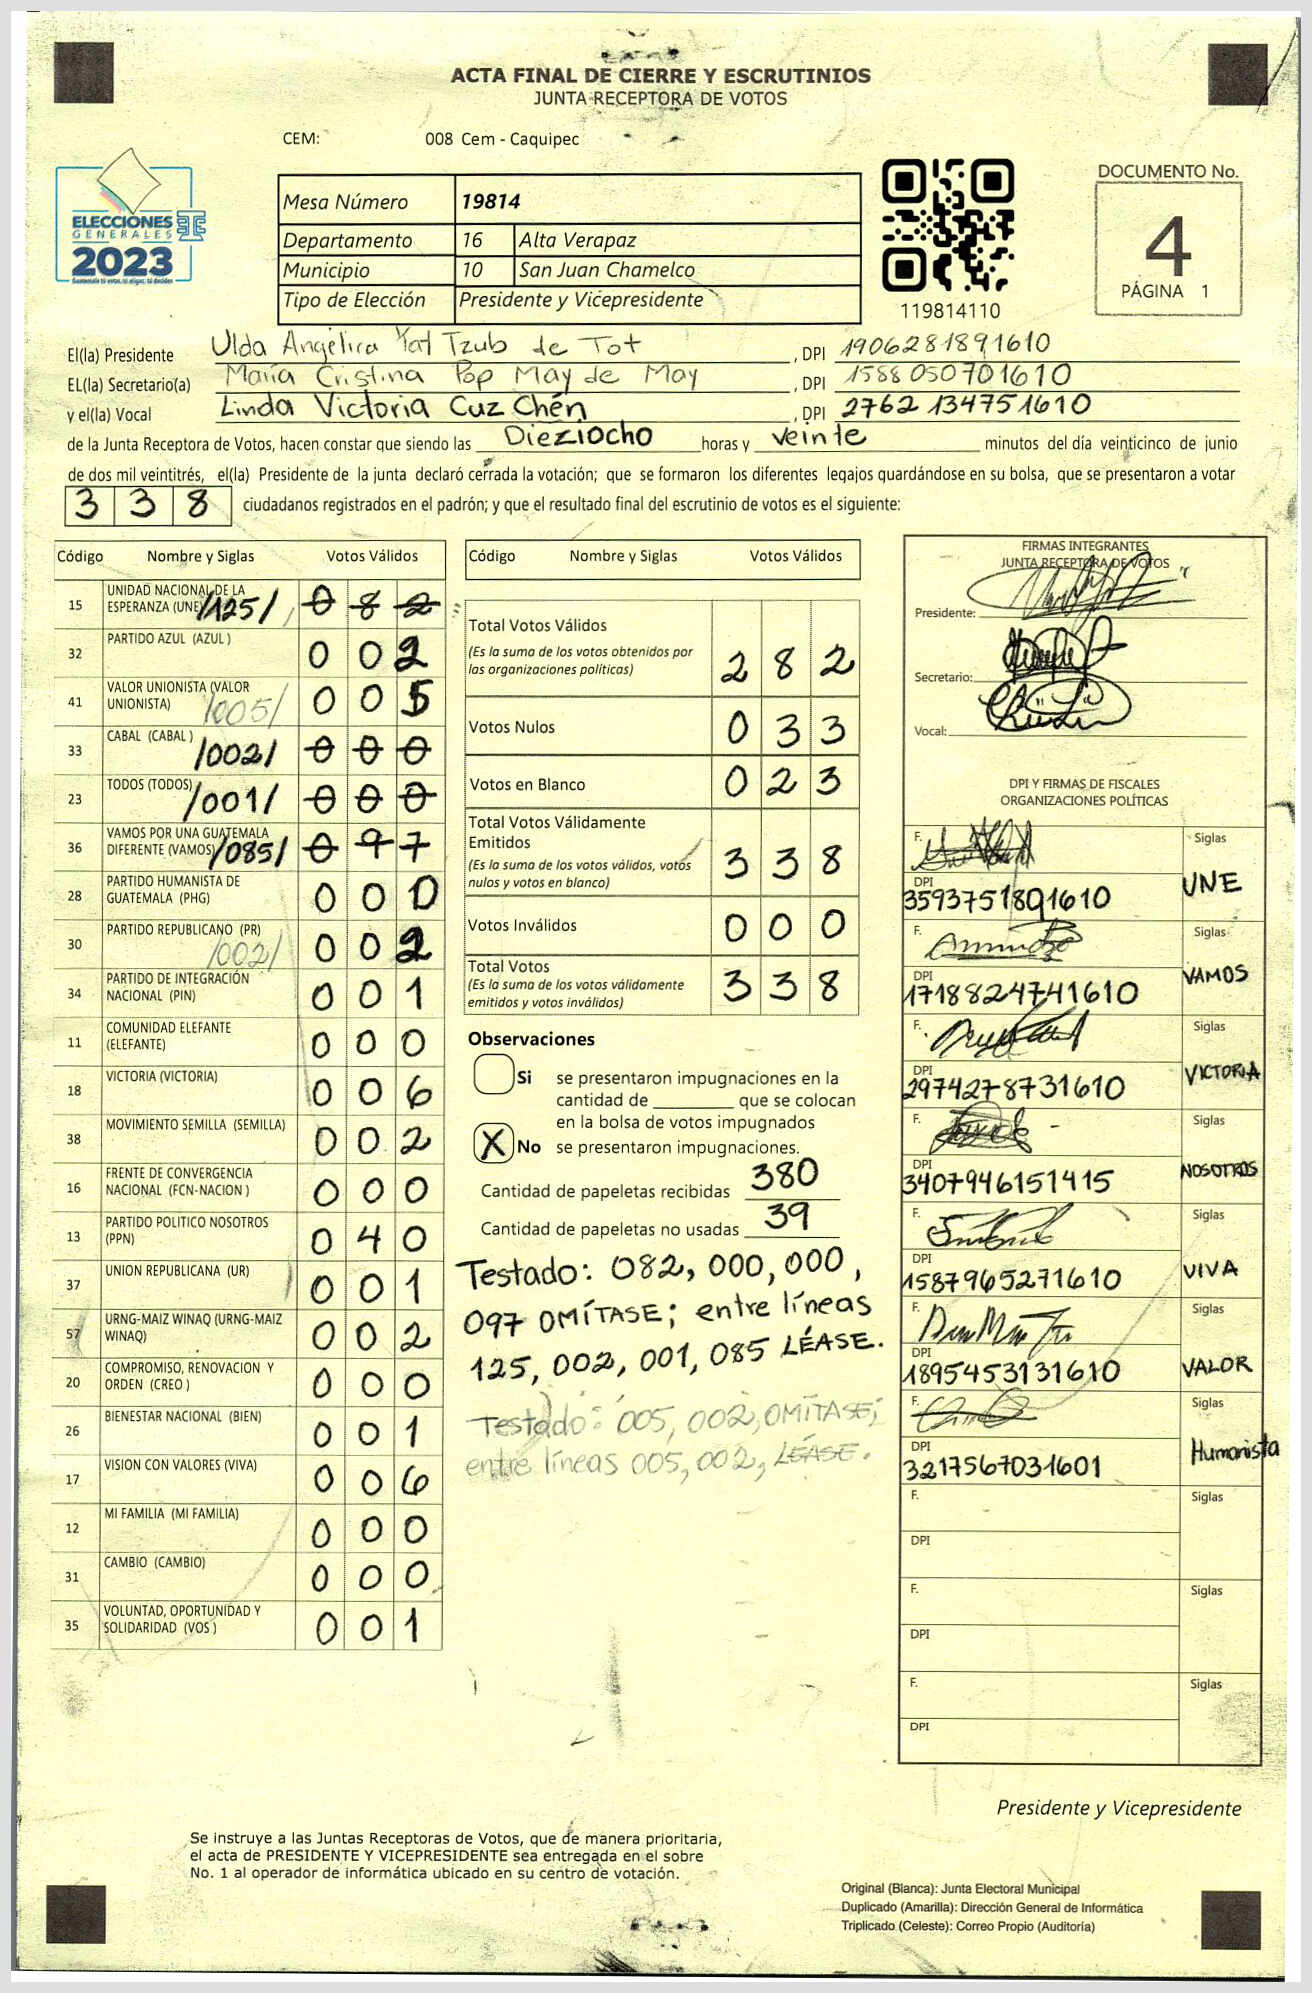 ACTA FINAL DE CIERRE Y ESCRUTINIOS
JUNTA RECEPTORA DE VOTOS
CEM: 008 Cem - Caquipec
ELECCIONES
GENERALES
2023
Mesa Número 19814
Departamento 16 Alta Verapaz
Municipio 10 San Juan Chamelco
Tipo de Elección Presidente y Vicepresidente
119814110
DOCUMENTO No.
4
PÁGINA 1
El(la) Presidente Ulda Angélica Yat Tzub de Tot , DPI 1906281891610
EL(la) Secretario(a) María Cristina Pop May de May , DPI 1588050701610
y el(la) Vocal Linda Victoria Cuz Chén , DPI 2762134751610
de la Junta Receptora de Votos, hacen constar que siendo las Dieziocho horas y veinte minutos del día veinticinco de junio
de dos mil veintitrés, el(la) Presidente de la junta declaró cerrada la votación; que se formaron los diferentes legajos guardándose en su bolsa, que se presentaron a votar
338 ciudadanos registrados en el padrón; y que el resultado final del escrutinio de votos es el siguiente:
Código Nombre y Siglas Votos Válidos
15 UNIDAD NACIONAL DE LA
ESPERANZA (UNE) /125/ 0 8 2
32 PARTIDO AZUL (AZUL ) 0 0 2
41 VALOR UNIONISTA (VALOR
UNIONISTA) /005/ 0 0 5
33 CABAL (CABAL ) /002/ 0 0 0
23 TODOS (TODOS) /001/ 0 0 0
36 VAMOS POR UNA GUATEMALA
DIFERENTE (VAMOS) /085/ 0 9 7
28 PARTIDO HUMANISTA DE
GUATEMALA (PHG) 0 0 0
30 PARTIDO REPUBLICANO (PR) /002/ 0 0 2
34 PARTIDO DE INTEGRACIÓN
NACIONAL (PIN) 0 0 1
11 COMUNIDAD ELEFANTE
(ELEFANTE) 0 0 0
18 VICTORIA (VICTORIA) 0 0 6
38 MOVIMIENTO SEMILLA (SEMILLA) 0 0 2
16 FRENTE DE CONVERGENCIA
NACIONAL (FCN-NACION ) 0 0 0
13 PARTIDO POLITICO NOSOTROS
(PPN) 0 4 0
37 UNION REPUBLICANA (UR) 0 0 1
57 URNG-MAIZ WINAQ (URNG-MAIZ
WINAQ) 0 0 2
20 COMPROMISO, RENOVACION Y
ORDEN (CREO ) 0 0 0
26 BIENESTAR NACIONAL (BIEN) 0 0 1
17 VISION CON VALORES (VIVA) 0 0 6
12 MI FAMILIA (MI FAMILIA) 0 0 0
31 CAMBIO (CAMBIO) 0 0 0
35 VOLUNTAD, OPORTUNIDAD Y
SOLIDARIDAD (VOS ) 0 0 1
Código Nombre y Siglas Votos Válidos
Total Votos Válidos
(Es la suma de los votos obtenidos por
las organizaciones políticas) 2 8 2
Votos Nulos 0 3 3
Votos en Blanco 0 2 3
Total Votos Válidamente
Emitidos
(Es la suma de los votos válidos, votos
nulos y votos en blanco) 3 3 8
Votos Inválidos 0 0 0
Total Votos
(Es la suma de los votos válidamente
emitidos y votos inválidos) 3 3 8
Observaciones
Si se presentaron impugnaciones en la
cantidad de ________ que se colocan
en la bolsa de votos impugnados
X No se presentaron impugnaciones.
Cantidad de papeletas recibidas 380
Cantidad de papeletas no usadas 39
Testado: 082, 000, 000,
097 OMÍTASE; entre líneas
125, 002, 001, 085 LÉASE.
Testado: 005, 002, OMÍTASE;
entre líneas 005, 002, LÉASE.
FIRMAS INTEGRANTES
JUNTA RECEPTORA DE VOTOS
Presidente:
Secretario:
Vocal:
DPI Y FIRMAS DE FISCALES
ORGANIZACIONES POLÍTICAS
F. Siglas
DPI
3593751891610 UNE
F. Siglas
DPI
1718824741610 VAMOS
F. Siglas
DPI
2974278731610 VICTORIA
F. Siglas
DPI
3407946151415 NOSOTROS
F. Siglas
DPI
1587965271610 VIVA
F. Siglas
DPI
1895453131610 VALOR
F. Siglas
DPI
3217567031601 Humanista
F. Siglas
DPI
F. Siglas
DPI
F. Siglas
DPI
Presidente y Vicepresidente
Se instruye a las Juntas Receptoras de Votos, que de manera prioritaria,
el acta de PRESIDENTE Y VICEPRESIDENTE sea entregada en el sobre
No. 1 al operador de informática ubicado en su centro de votación.
Original (Blanca): Junta Electoral Municipal
Duplicado (Amarilla): Dirección General de Informática
Triplicado (Celeste): Correo Propio (Auditoría)